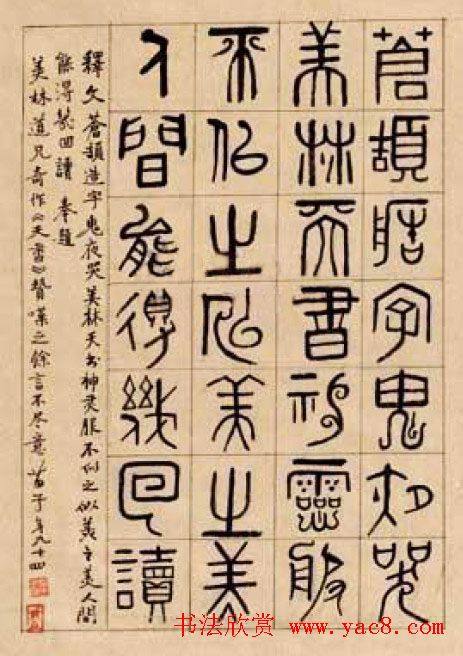 蒼頡造字鬼夜哭
美林天書神靈服
不佀之佀美之美
人間能得幾回讀
釋文蒼頡造字鬼夜哭美林天书神灵服不似之似美之美人間
能得幾回讀 奉題
美林道兄奇作《天書》贊嘆之餘言不尽意 苗子年九十四
书法欣赏 www.yac8.com